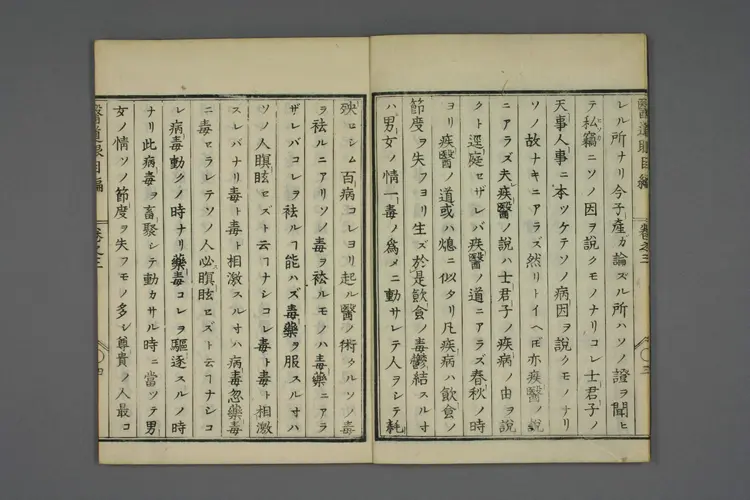 レル所ナリ今子產カ論ズル所ハソノ證ヲ聞ヒ
テ私竊ニソノ因ヲ說クモノナリコレ士君子ノ
ヒソカ
天事人事ニ本ヅケテソノ病因ヲ說クモノナリ
ソノ故ナキニアラズ然リトイヘ𪜈亦疾醫ノ說
ニアラズ夫疾醫ノ說ハ士君子ノ疾病ノ由ヲ說
クト逕庭セザレバ疾醫ノ道ニアラズ春秋ノ時
ヨリ疾醫ノ道或ハ熄ニ似タリ凡疾病ハ飮食ノ
節度ヲ失フヨリ生ズ於是飮食ノ毒鬱結スルオ
ハ男女ノ情一毒ノ爲メニ動サレテ人ヲシテ耗
醫道眼目編
卷之三
三
殃セシム百病コレヨリ起ル醫ノ術タルソノ毒
ヲ祛ルニアリソノ毒ヲ祛ルモノハ毒藥ニアラ
ザレバコレヲ祛ルヿ能ハズ毒藥ヲ服スルオハ
ソノ人瞑眩セズト云ヿナシコレ毒ト毒ト相激
スレバナリ毒ト毒ト相激スルオハ病毒忽藥毒
ニ毒セラレテソノ人必瞑眩セズト云ヿナシコ
レ病毒動クノ時ナリ藥毒コレヲ驅逐スルノ時
ナリ此病毒ヲ畜聚シテ動カサル時ニ當ツテ男
女ノ情ソノ節度ヲ失フモノ多シ尊貴ノ人最コ
醫道眼目編
卷之三
四